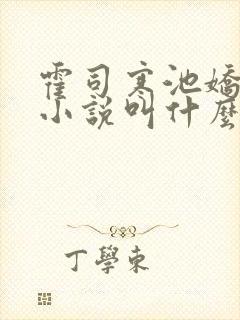 霍司寒池嬌
小說叫什麼
丁學東